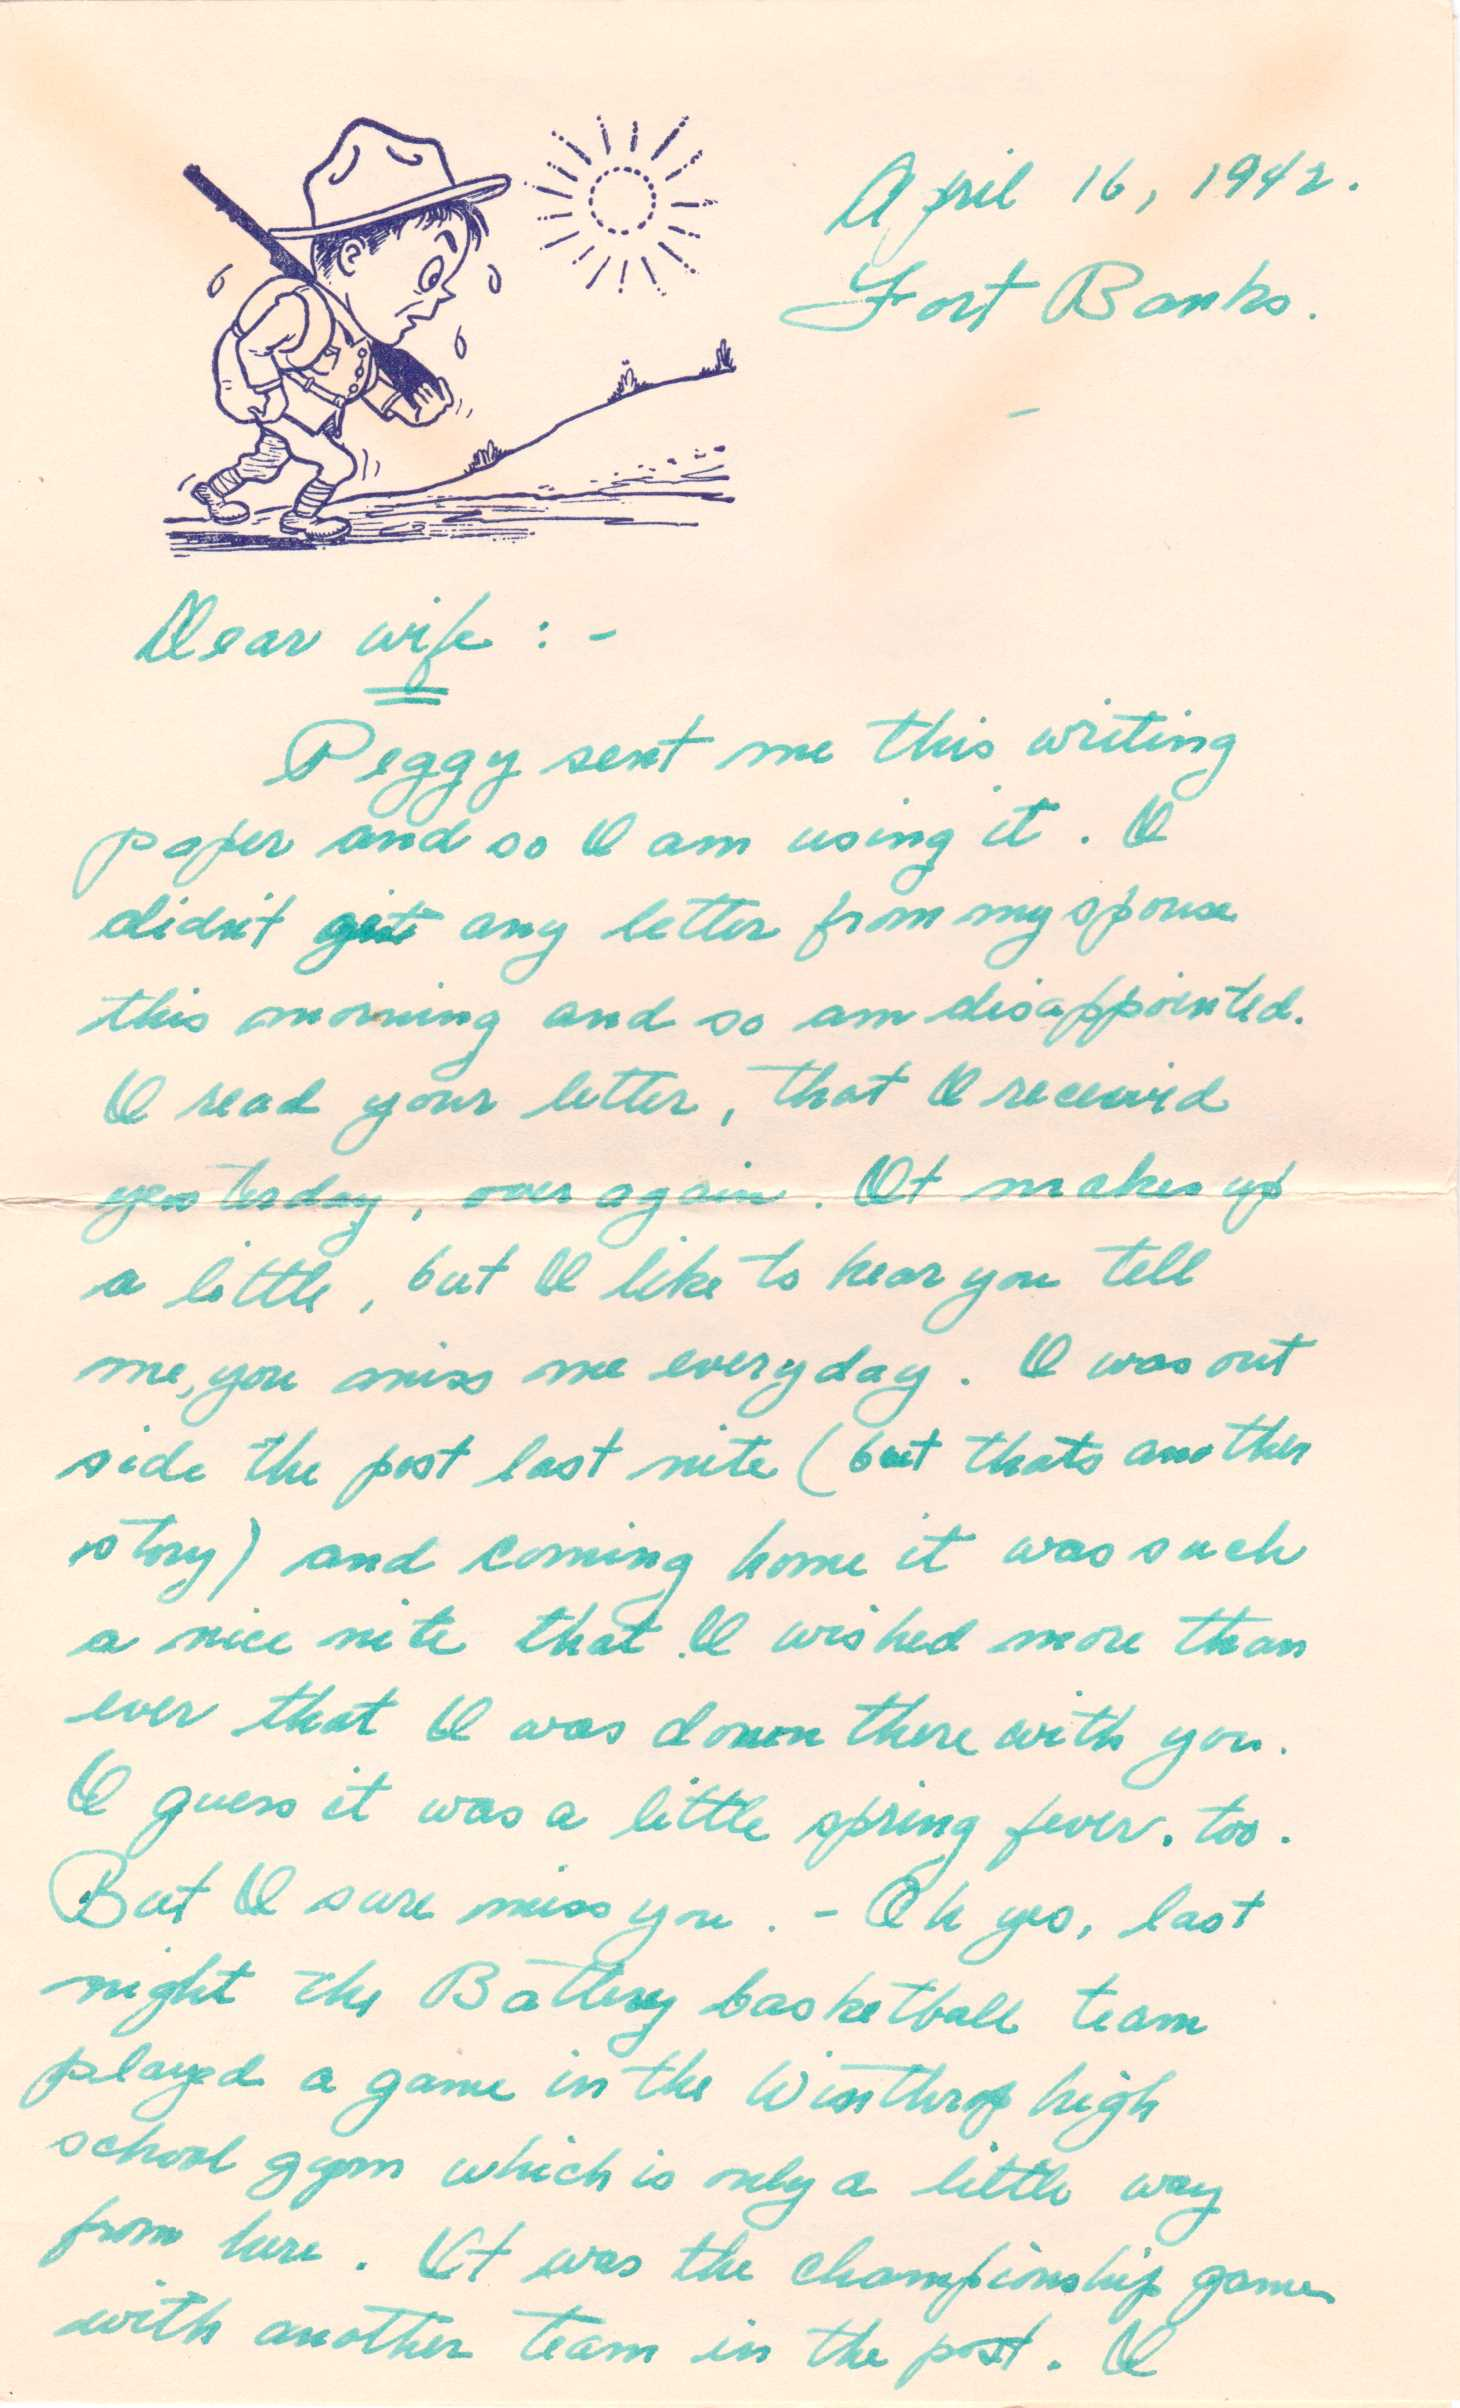 April 16, 1942.
Fort Banks.
-
Dear wife : -
Peggy sent me this writing
paper and so I am using it. I
didn't get any letter from my spouse
this morning and so am disappointed.
I read your letter, that I received
yesterday, over again. It makes up
a little, but I like to hear you tell
me, you miss me everyday. I was out
side the post last nite (but thats another
story) and coming home it was such
a nice nite that I wished more than
ever that I was down there with you.
I guess it was a little spring fever. too.
But I sure miss you. - Oh yes, last
night the Battery basketball team
played a game in the Winthrop high
school gym which is only a little way
from here. It was the championship game
with another team in the post. I